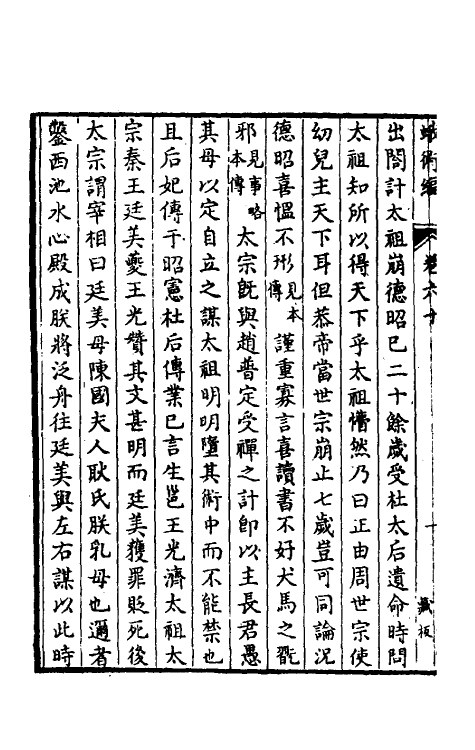 蛾術編 卷六十 十 藏板
出閤計太祖崩德昭已二十餘歲受杜太后遺命時問
太祖知所以得天下乎太祖懵然乃曰正由周世宗使
幼兒主天下耳但恭帝當世宗崩止七歲豈可同論況
德昭喜慍不形見本傳謹重寡言喜讀書不好犬馬之翫
邪見事略本傳太宗既與趙普定受禪之計卽以主長君愚
其母以定自立之謀太祖明明墮其術中而不能禁也
且后妃傳于昭憲杜后傳業已言生邕王光濟太祖太
宗秦王廷美夔王光贊其文甚明而廷美獲罪貶死後
太宗謂宰相曰廷美母陳國夫人耿氏朕乳母也邇者
鑿西池水心殿成朕將泛舟往廷美與左右謀以此時